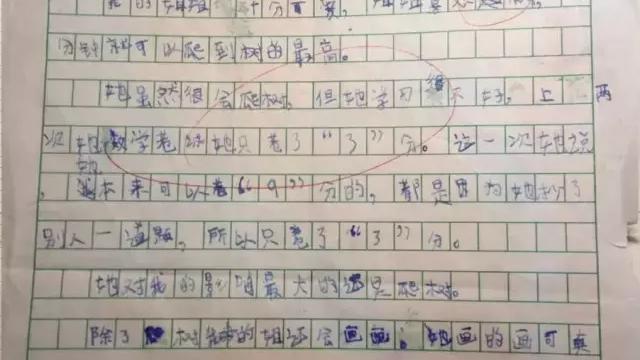 的姐姐十分可爱,姐姐喜
分钟就可以爬到树的最高。
她虽然很会爬树,但她学习很不好。上两
次她数学卷她只考了“3”分。这一次她说
她本来可以考“9”分的,都是因为她抄了
别人一道题,所以只考了“3”分。
她对我的影响最大的还是爬树。
除了树的姐还会画画,她画的画可真